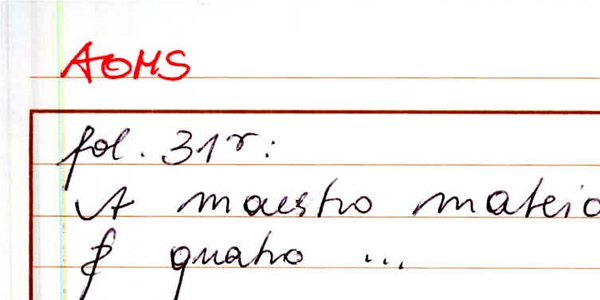 AOMS
fol. 31r:
A maestro mateio
₰ quatro ...